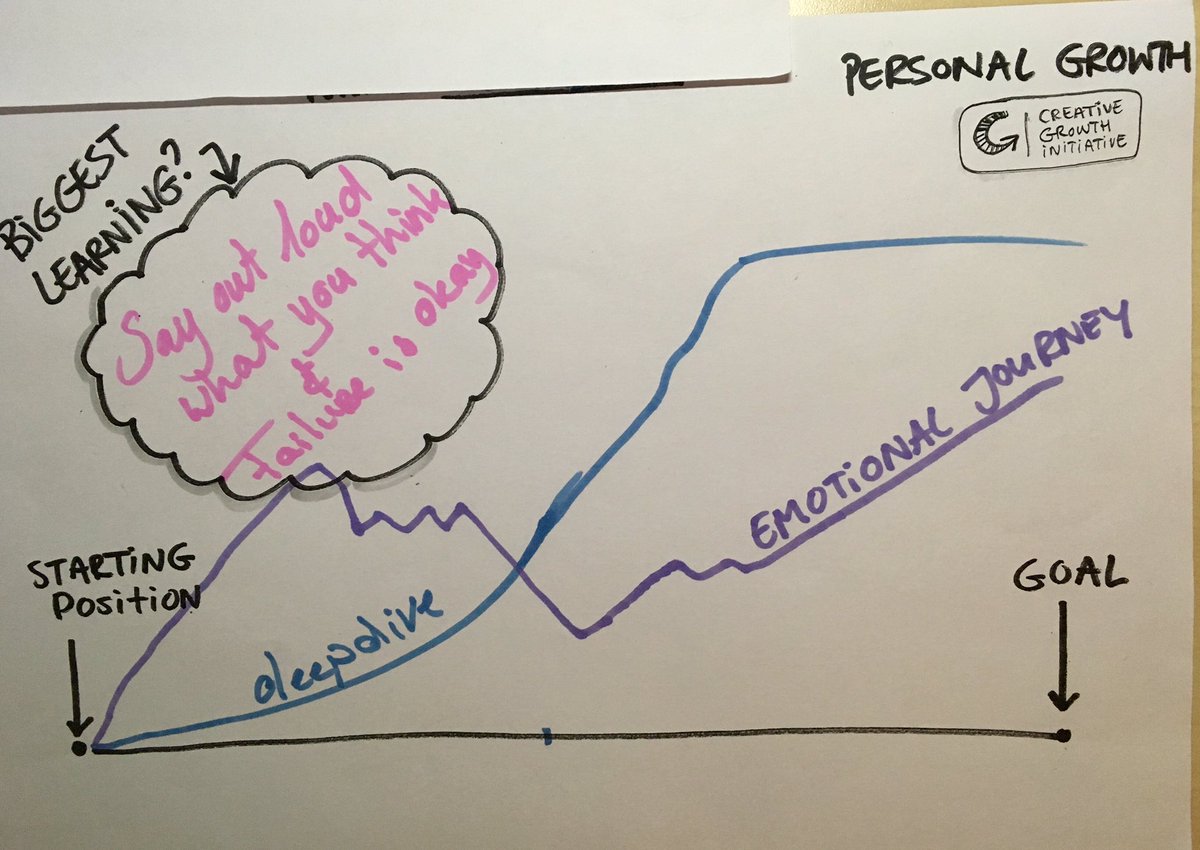 PERSONAL GROWTH
G
CREATIVE
GROWTH
INITIATIVE
BIGGEST
LEARNING?
Say out loud
what you think
&
Failure is okay
EMOTIONAL JOURNEY
STARTING
Position
GOAL
deepdive